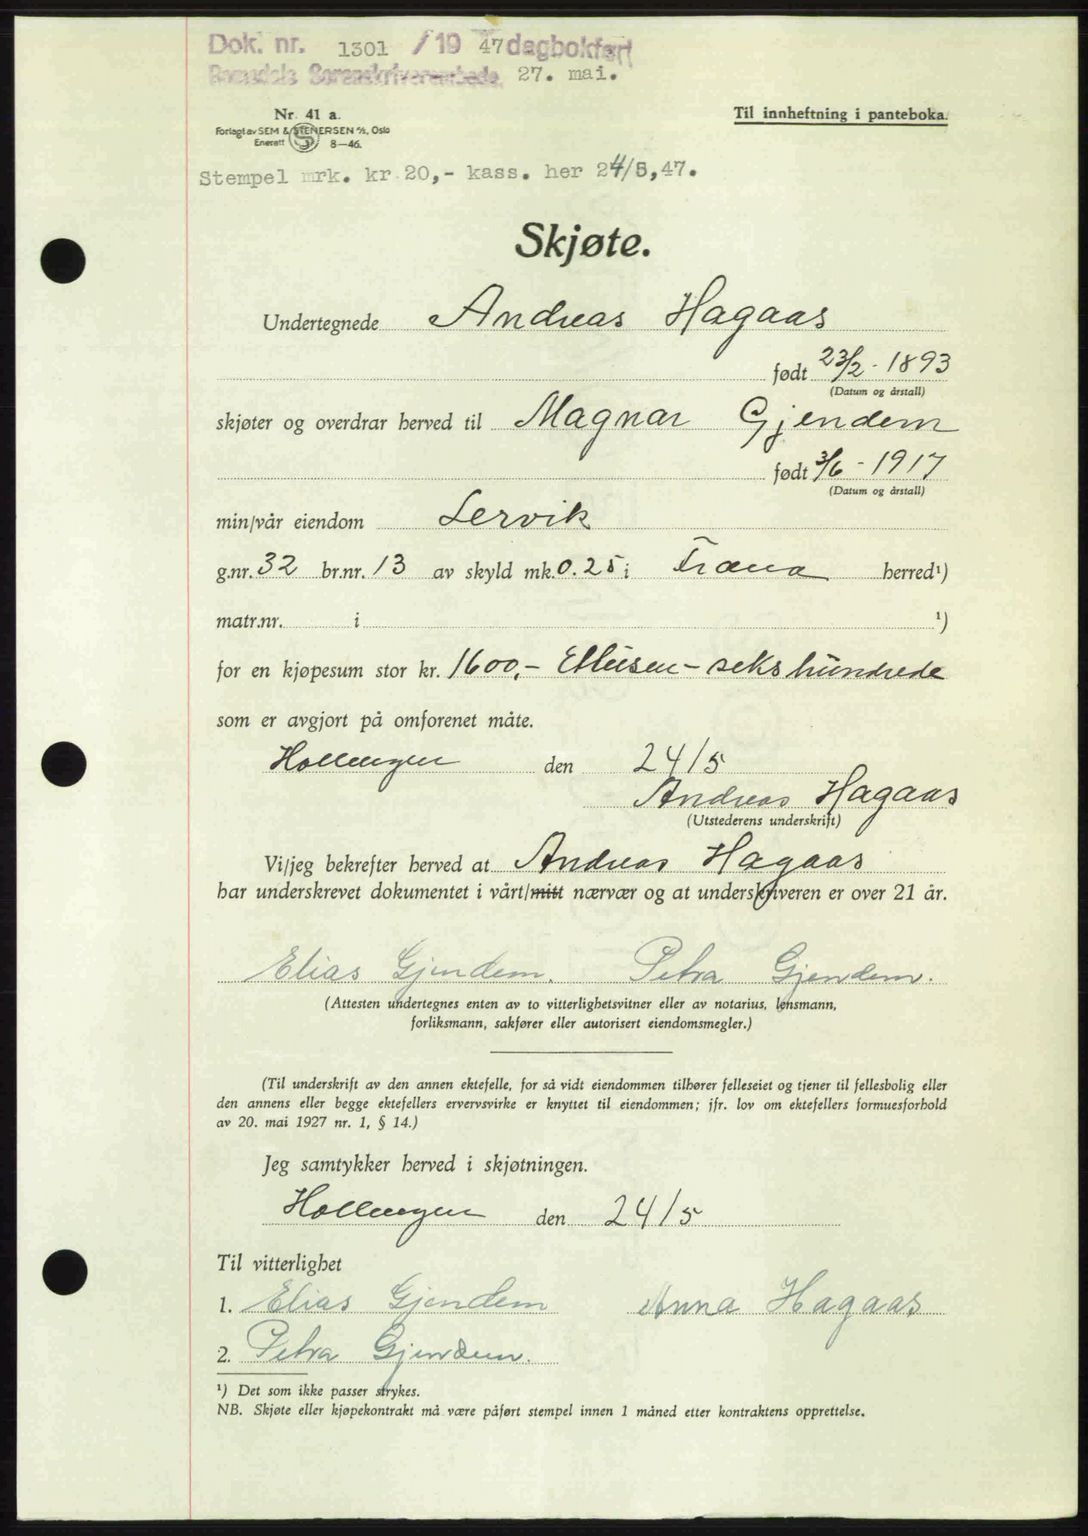 Dok. nr. 1301 / 19 47 dagbokført
Romsdals Sorenskriverembede 27. mai.
Nr. 41 a.
Til innheftning i panteboka.
Forlagt av SEM & STENERSEN A/S, Oslo
Enerett 8—46.
Stempel mrk. kr 20,- kass. her 24/5,47.
Skjøte.
Undertegnede Andreas Hagaas
født 23/2 - 1893
(Datum og årstall)
skjøter og overdrar herved til Magnar Gjendem
født 3/6 - 1917
(Datum og årstall)
min/vår eiendom Lervik
g.nr. 32 br.nr. 13 av skyld mk. 0.25 i Fræna herred¹)
matr.nr. i ¹)
for en kjøpesum stor kr. 1600,- Ettusen - seks hundrede
som er avgjort på omforenet måte.
Hollingen den 24/5
Andreas Hagaas
(Utstederens underskrift)
Vi/jeg bekrefter herved at Andreas Hagaas
har underskrevet dokumentet i vårt/mitt nærvær og at underskriveren er over 21 år.
Elias Gjendem. Petra Gjendem.
(Attesten undertegnes enten av to vitterlighetsvitner eller av notarius, lensmann,
forliksmann, sakfører eller autorisert eiendomsmegler.)
(Til underskrift av den annen ektefelle, for så vidt eiendommen tilhører felleseiet og tjener til fellesbolig eller
den annens eller begge ektefellers ervervsvirke er knyttet til eiendommen; jfr. lov om ektefellers formuesforhold
av 20. mai 1927 nr. 1, § 14.)
Jeg samtykker herved i skjøtningen.
Hollingen den 24/5
Til vitterlighet
1. Elias Gjendem Anna Hagaas
2. Petra Gjendem.
¹) Det som ikke passer strykes.
NB. Skjøte eller kjøpekontrakt må være påført stempel innen 1 måned etter kontraktens opprettelse.